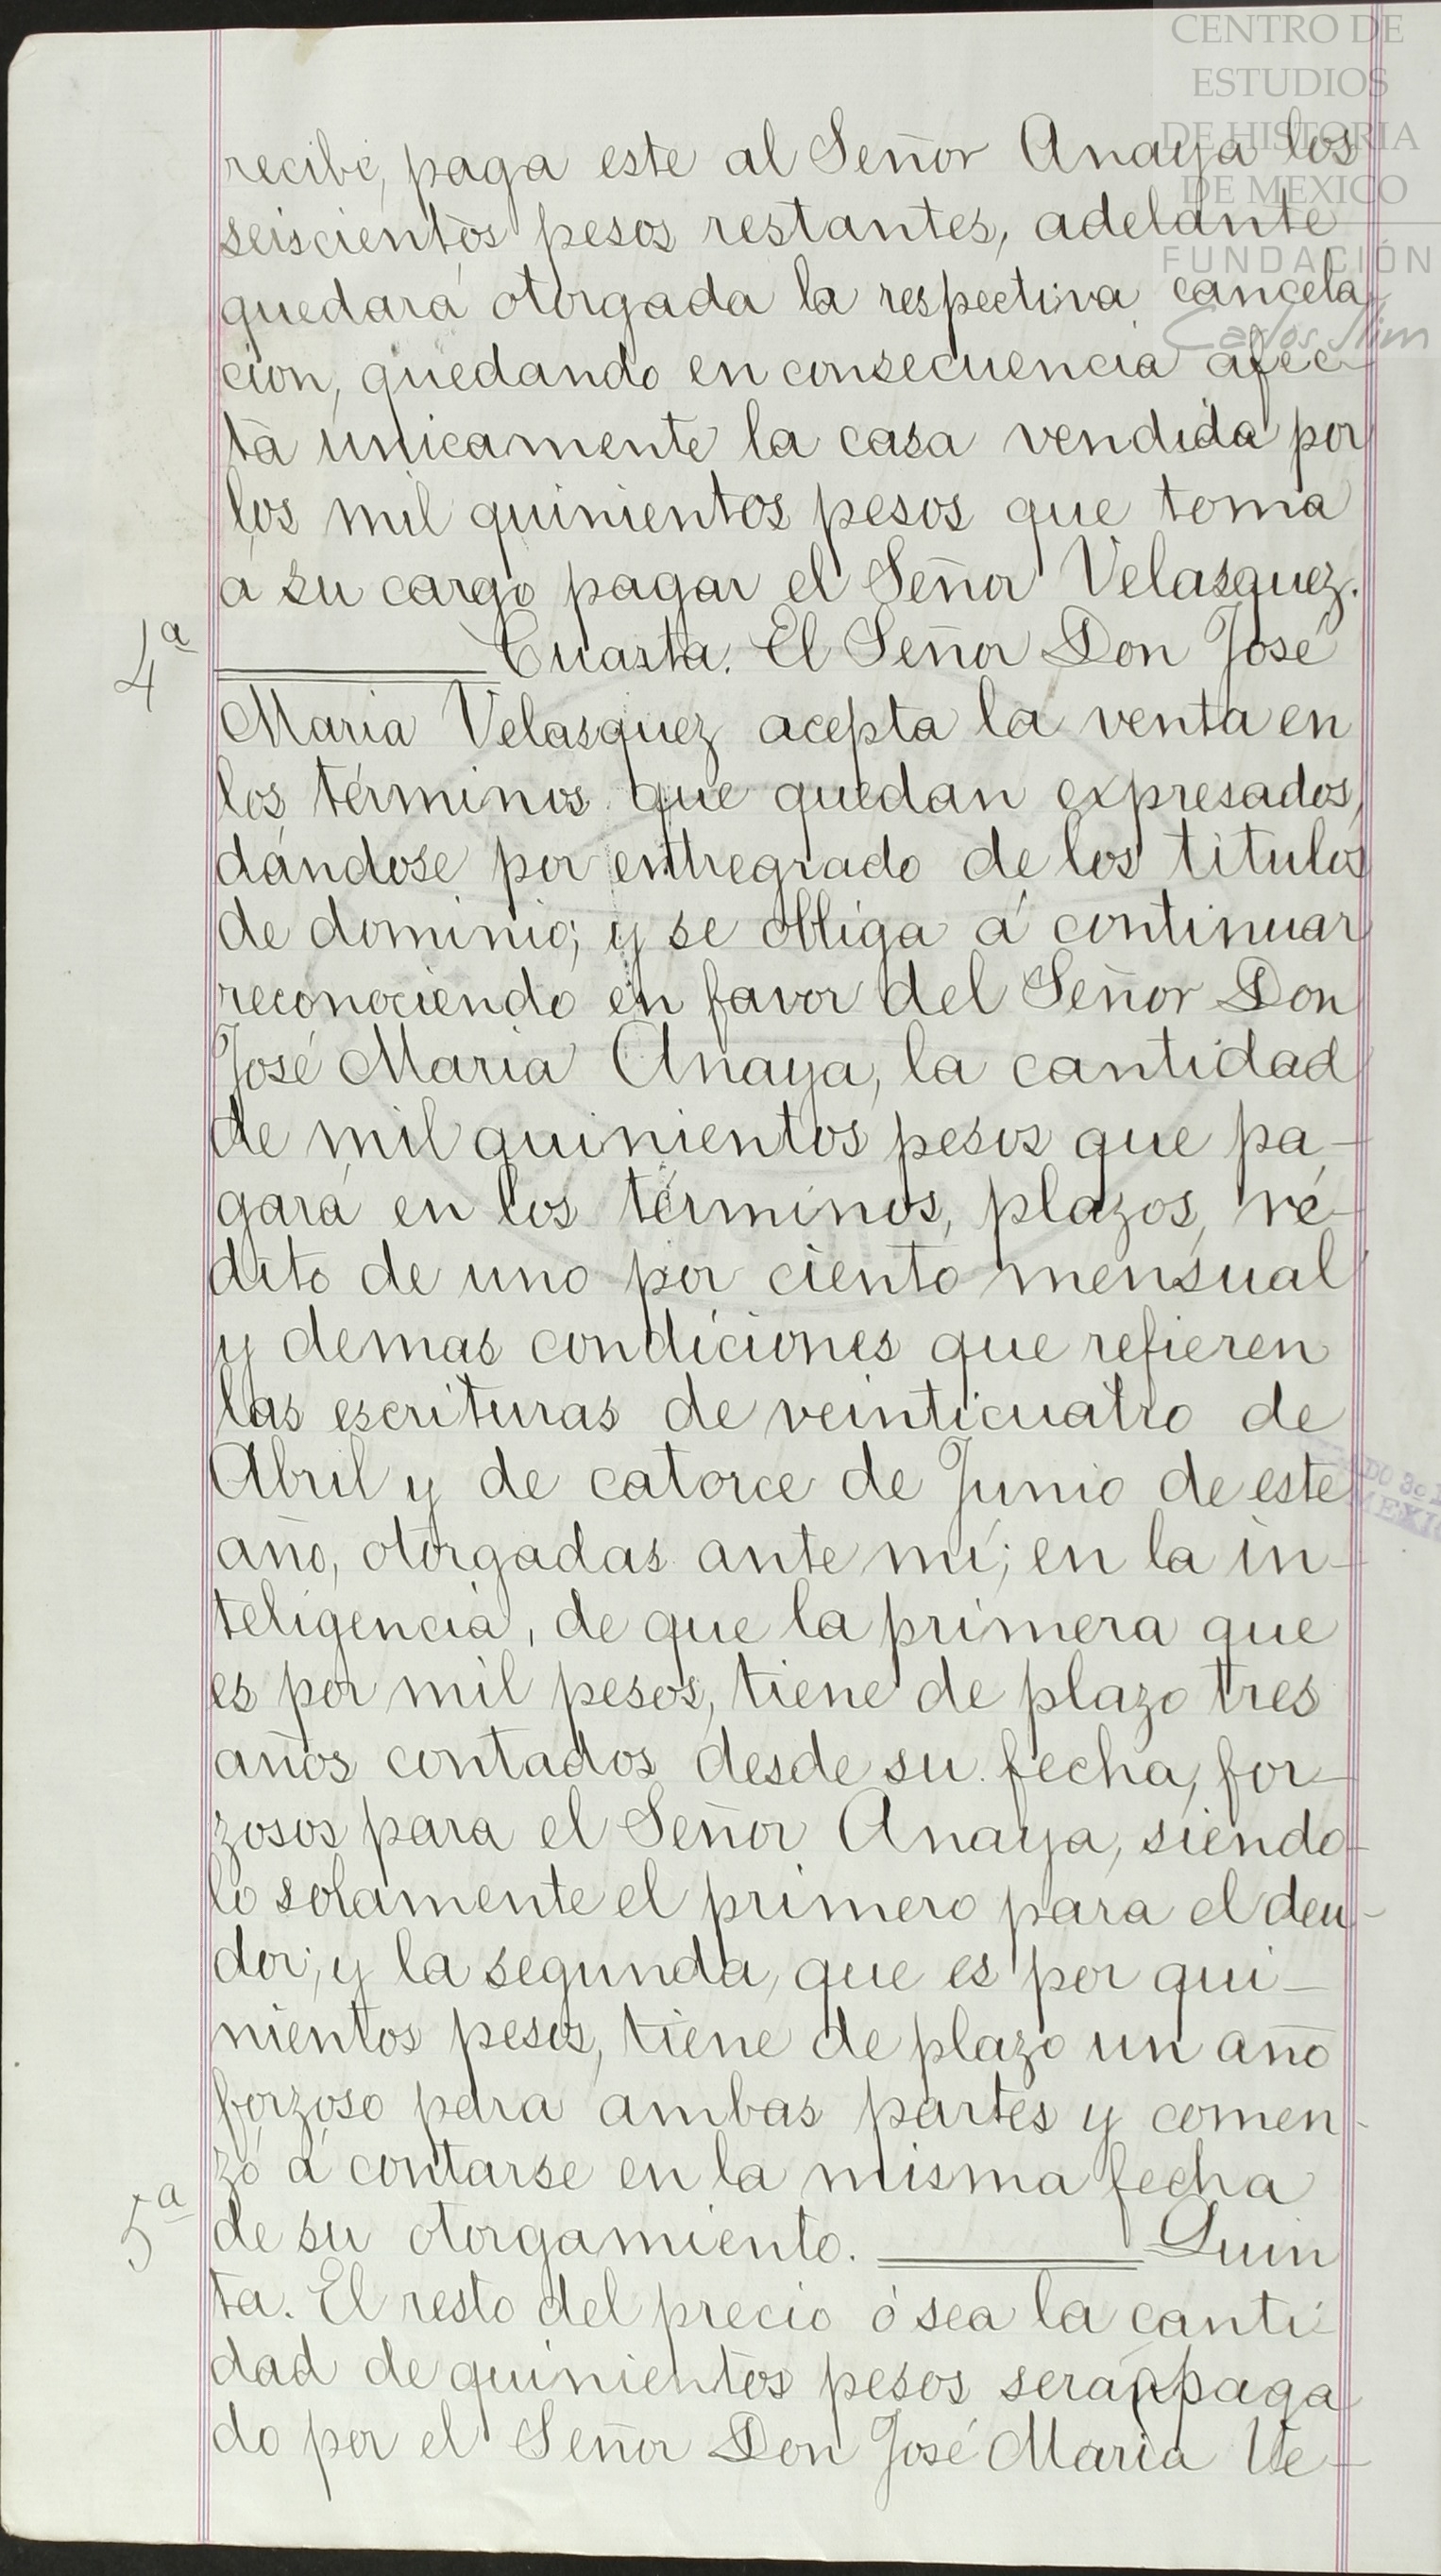 CENTRO DE
ESTUDIOS
DE HISTORIA
DE MEXICO
FUNDACIÓN
Carlos Slim
recibe, paga este al Señor Anaya los
seiscientos pesos restantes, adelante
quedará otorgada la respectiva cancela
cion, quedando en consecuencia afec-
ta únicamente la casa vendida por
los mil quinientos pesos que toma
a su cargo pagar el Señor Velasquez.
4ª
Cuarta. El Señor Don José
Maria Velasquez acepta la venta en
los términos que quedan expresados,
dándose por entregrado de los titulos
de dominio; y se obliga á continuar
reconociendo en favor del Señor Don
José Maria Anaya, la cantidad
de mil quinientos pesos que pa-
gará en los términos, plazos, ré-
dito de uno por ciento mensual
y demas condiciones que refieren
las escrituras de veinticuatro de
Abril y de catorce de Junio de este
año, otorgadas ante mí; en la in-
teligencia, de que la primera que
es por mil pesos, tiene de plazo tres
años contados desde su fecha, for-
zosos para el Señor Anaya, siendo-
lo solamente el primero para el deu-
dor; y la segunda, que es por qui-
nientos pesos, tiene de plazo un año
forzoso para ambas partes y comen-
zó á contarse en la misma fecha
5ª
de su otorgamiento. Quin
ta. El resto del precio ó sea la canti-
dad de quinientos pesos será paga
do por el Señor Don José Maria Ve-